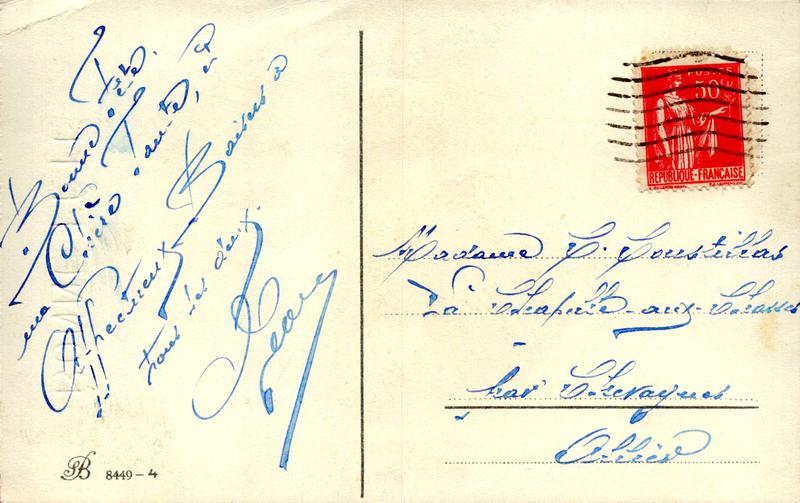 Bonne Fête
ma Chère
Santé, et
Affectueux Baisers à
tous les deux.
PB 8449-4
POSTES
50c
REPUBLIQUE FRANÇAISE
Madame C. Coustillas
La Chapelle-aux-Chasses
par Chevagnes
Allier